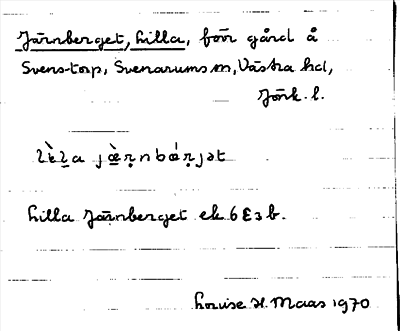 Järnberget, Lilla, förr gård å
Svenstorp, Svenarums sn, Västra hd,
Jönk. l.
lìla jæ̀rnbárjət
Lilla Järnberget ek 6E3b.
Louise H. Maas 1970